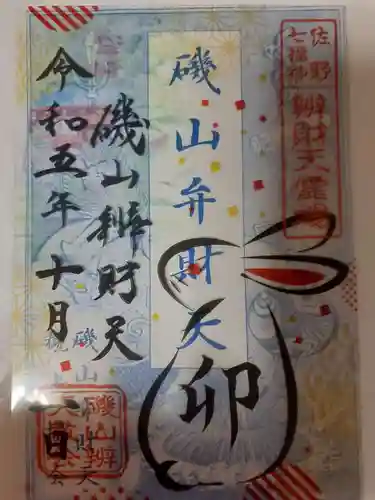 佐野
七福神
辨財天霊場
磯山弁財天
卯
磯山辨財天
令和五年十月一日
磯山辨